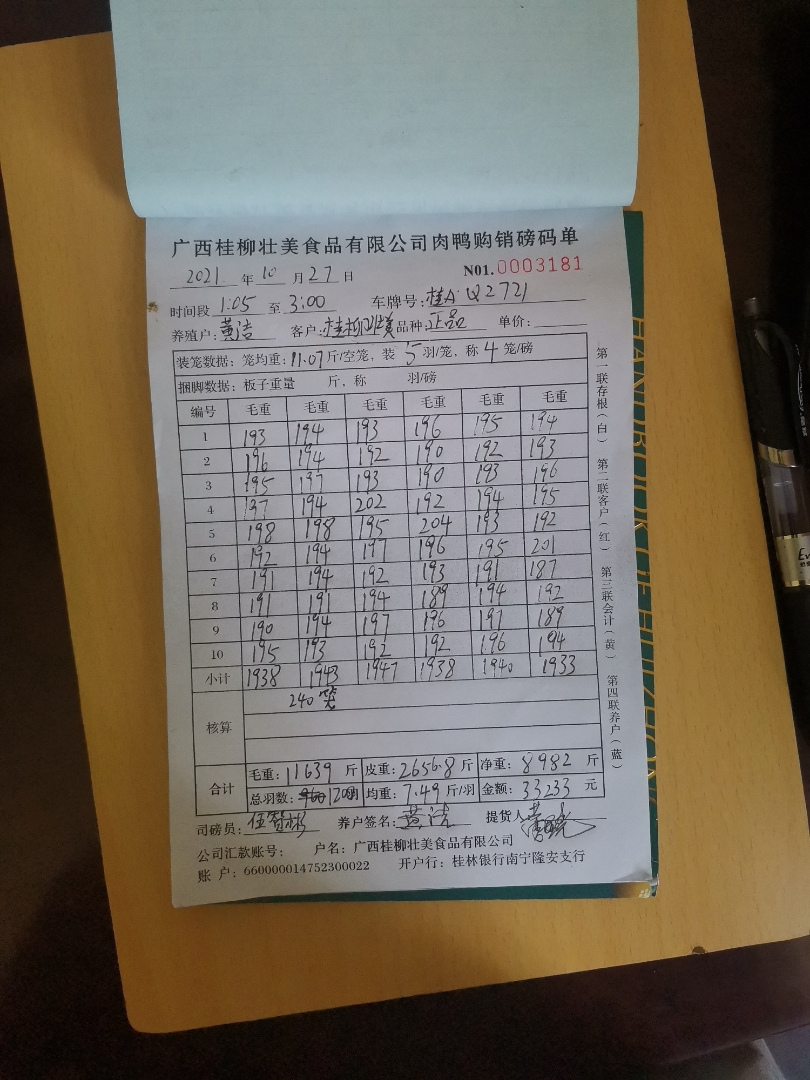 广西桂柳壮美食品有限公司肉鸭购销磅码单
2021 年 10 月 27 日 N01.0003181
时间段 1:05 至 3:00 车牌号: 桂A·Q2721
养殖户: 黄洁 客户: 桂柳壮美 品种: 正品 单价:
装笼数据: 笼均重: 11.07 斤/空笼, 装 5 羽/笼, 称 4 笼/磅
捆脚数据: 板子重量 斤, 称 羽/磅
编号 毛重 毛重 毛重 毛重 毛重 毛重
1 193 194 193 196 195 194
2 196 194 192 190 192 193
3 195 197 193 190 193 196
4 197 194 202 192 194 195
5 198 198 195 204 193 192
6 192 194 197 196 195 201
7 191 194 192 193 191 187
8 191 191 194 189 194 192
9 190 194 197 196 197 189
10 195 193 192 192 196 194
小计 1938 1943 1947 1938 1940 1933
核算 240笼
合计 毛重: 11639 斤 皮重: 2656.8 斤 净重: 8982 斤
总羽数: 960 1200 均重: 7.49 斤/羽 金额: 33233 元
司磅员: 养户签名: 黄洁 提货人
公司汇款账号: 户名: 广西桂柳壮美食品有限公司
账 户: 660000014752300022 开户行: 桂林银行南宁隆安支行
第一联存根(白) 第二联客户(红) 第三联会计(黄) 第四联养户(蓝)